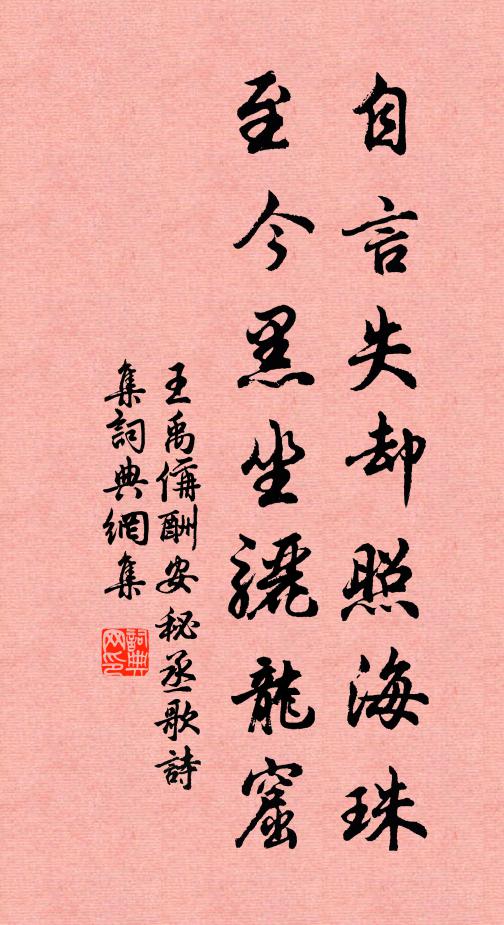 自言失却照海珠
至今黑坐驪龍窟
王禹偁酬安秘丞歌詩
集詞典網集
詞典网印